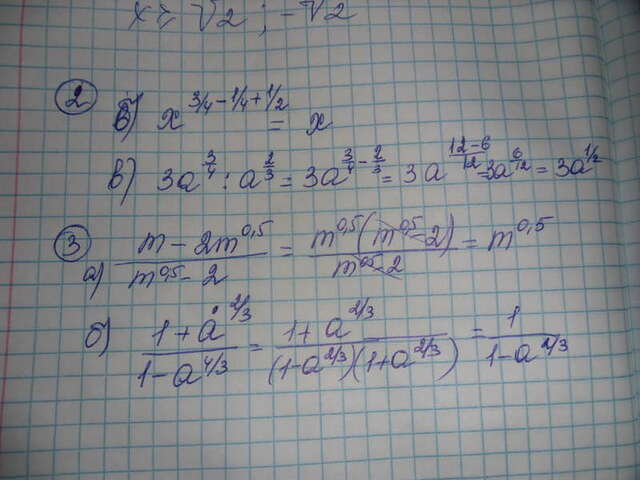 x ≥ √2 ; -√2
② б) x^{3/4 - 1/4 + 1/2} = x
в) 3a^{3/4} : a^{2/3} = 3a^{3/4 - 2/3} = 3a^{(12-6)/12} = 3a^{6/12} = 3a^{1/2}
③ а) (m - 2m^{0,5})/(m^{0,5} - 2) = (m^{0,5}(m^{0,5} - 2))/(m^{0,5} - 2) = m^{0,5}
б) (1 + a^{2/3})/(1 - a^{4/3}) = (1 + a^{2/3})/((1 - a^{2/3})(1 + a^{2/3})) = 1/(1 - a^{2/3})